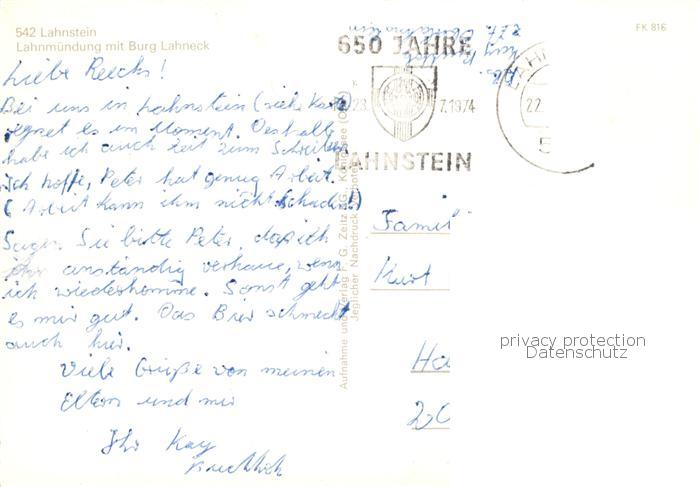 542 Lahnstein
Lahnmündung mit Burg Lahneck
FK 816
650 JAHRE
28.
7.1974
LAHNSTEIN
22.
5
Liebe Reecks!
Bei uns in Lahnstein (siehe Karte)
regnet es im Moment. Deshalb
habe ich auch Zeit zum Schreiben.
Ich hoffe, Peter hat genug Arbeit.
(Arbeit kann ihm nicht schaden!)
Sagen Sie bitte Peter, daß ich
ihn anständig verhaue, wenn
ich wiederkomme. Sonst geht
es mir gut. Das Bier schmeckt
auch hier.
Viele Grüße von meinen
Eltern und mir
Ihr Kay
Aufnahme und Verlag F. G. Zeitz KG., Königssee
Jeglicher Nachdruck verboten
Famil
Kurt
Ha
20
privacy protection
Datenschutz